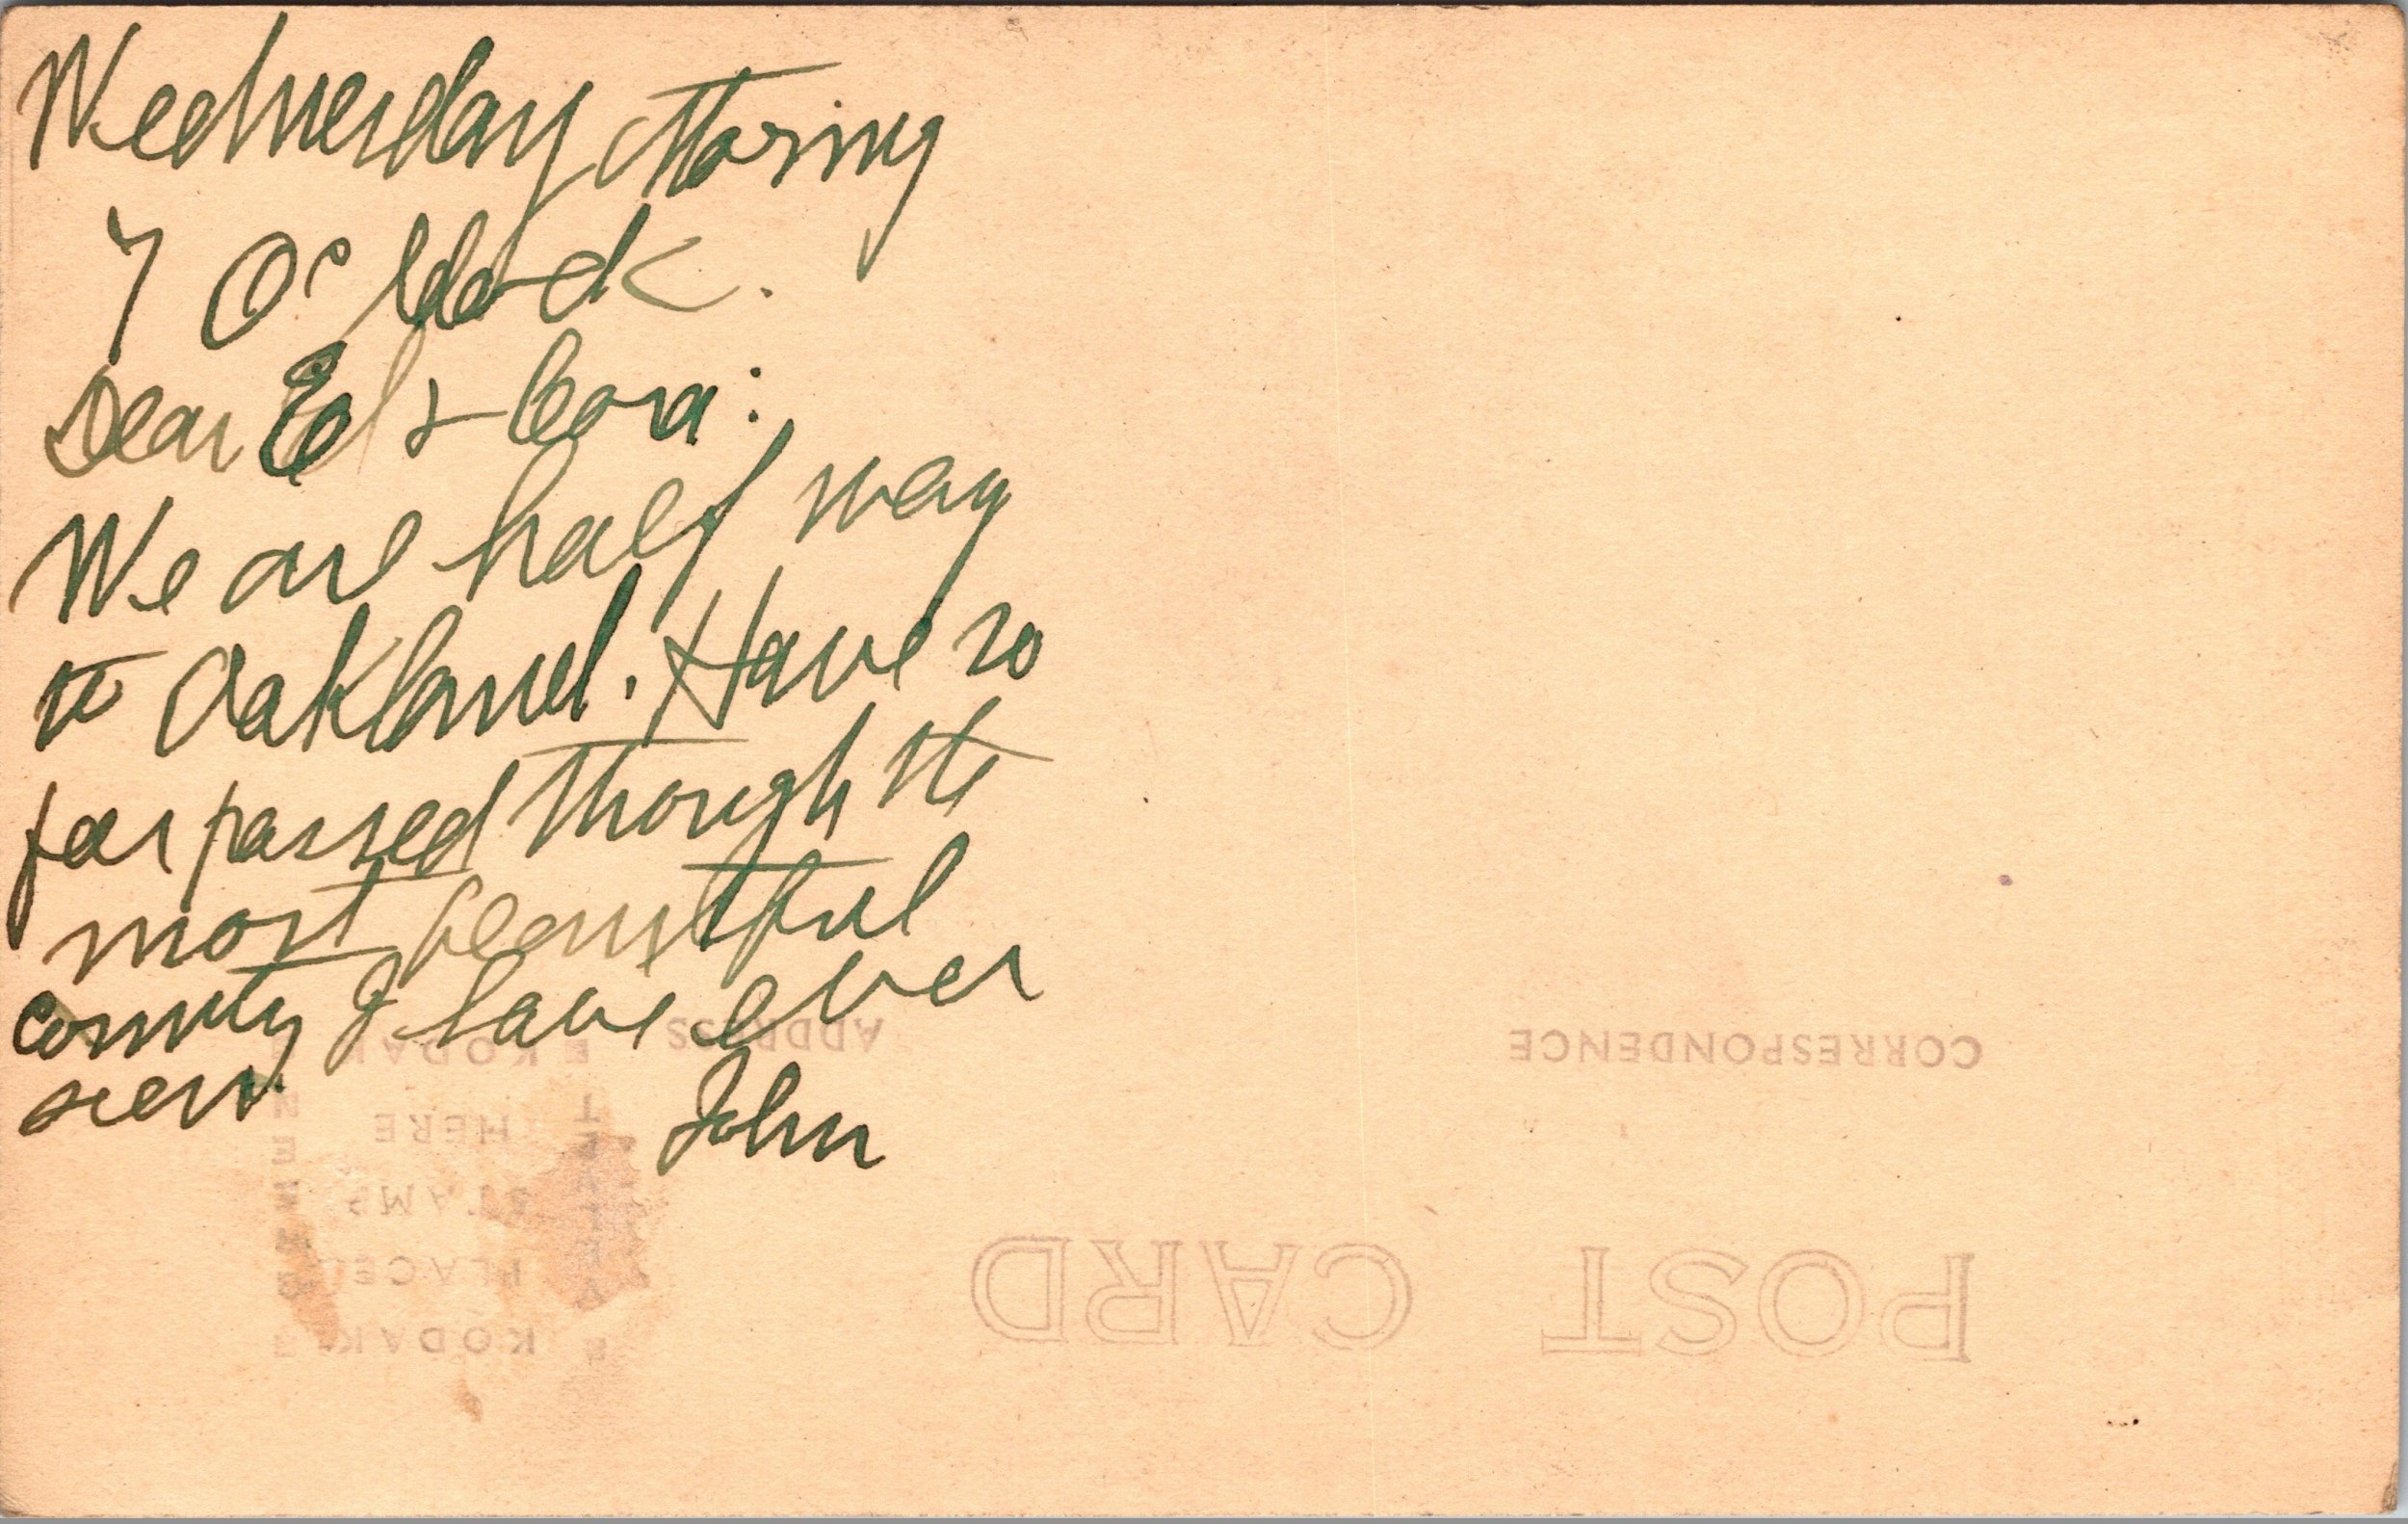 Wednesday Morning
7 O'clock.
Dear Ed & Cora:
We are half way
to Oakland. Have so
far passed though the
most beautiful
county I have ever
seen.
John
ADDRESS
CORRESPONDENCE
KODAK
HERE
STAMP
PLACE
KODAK
POST CARD